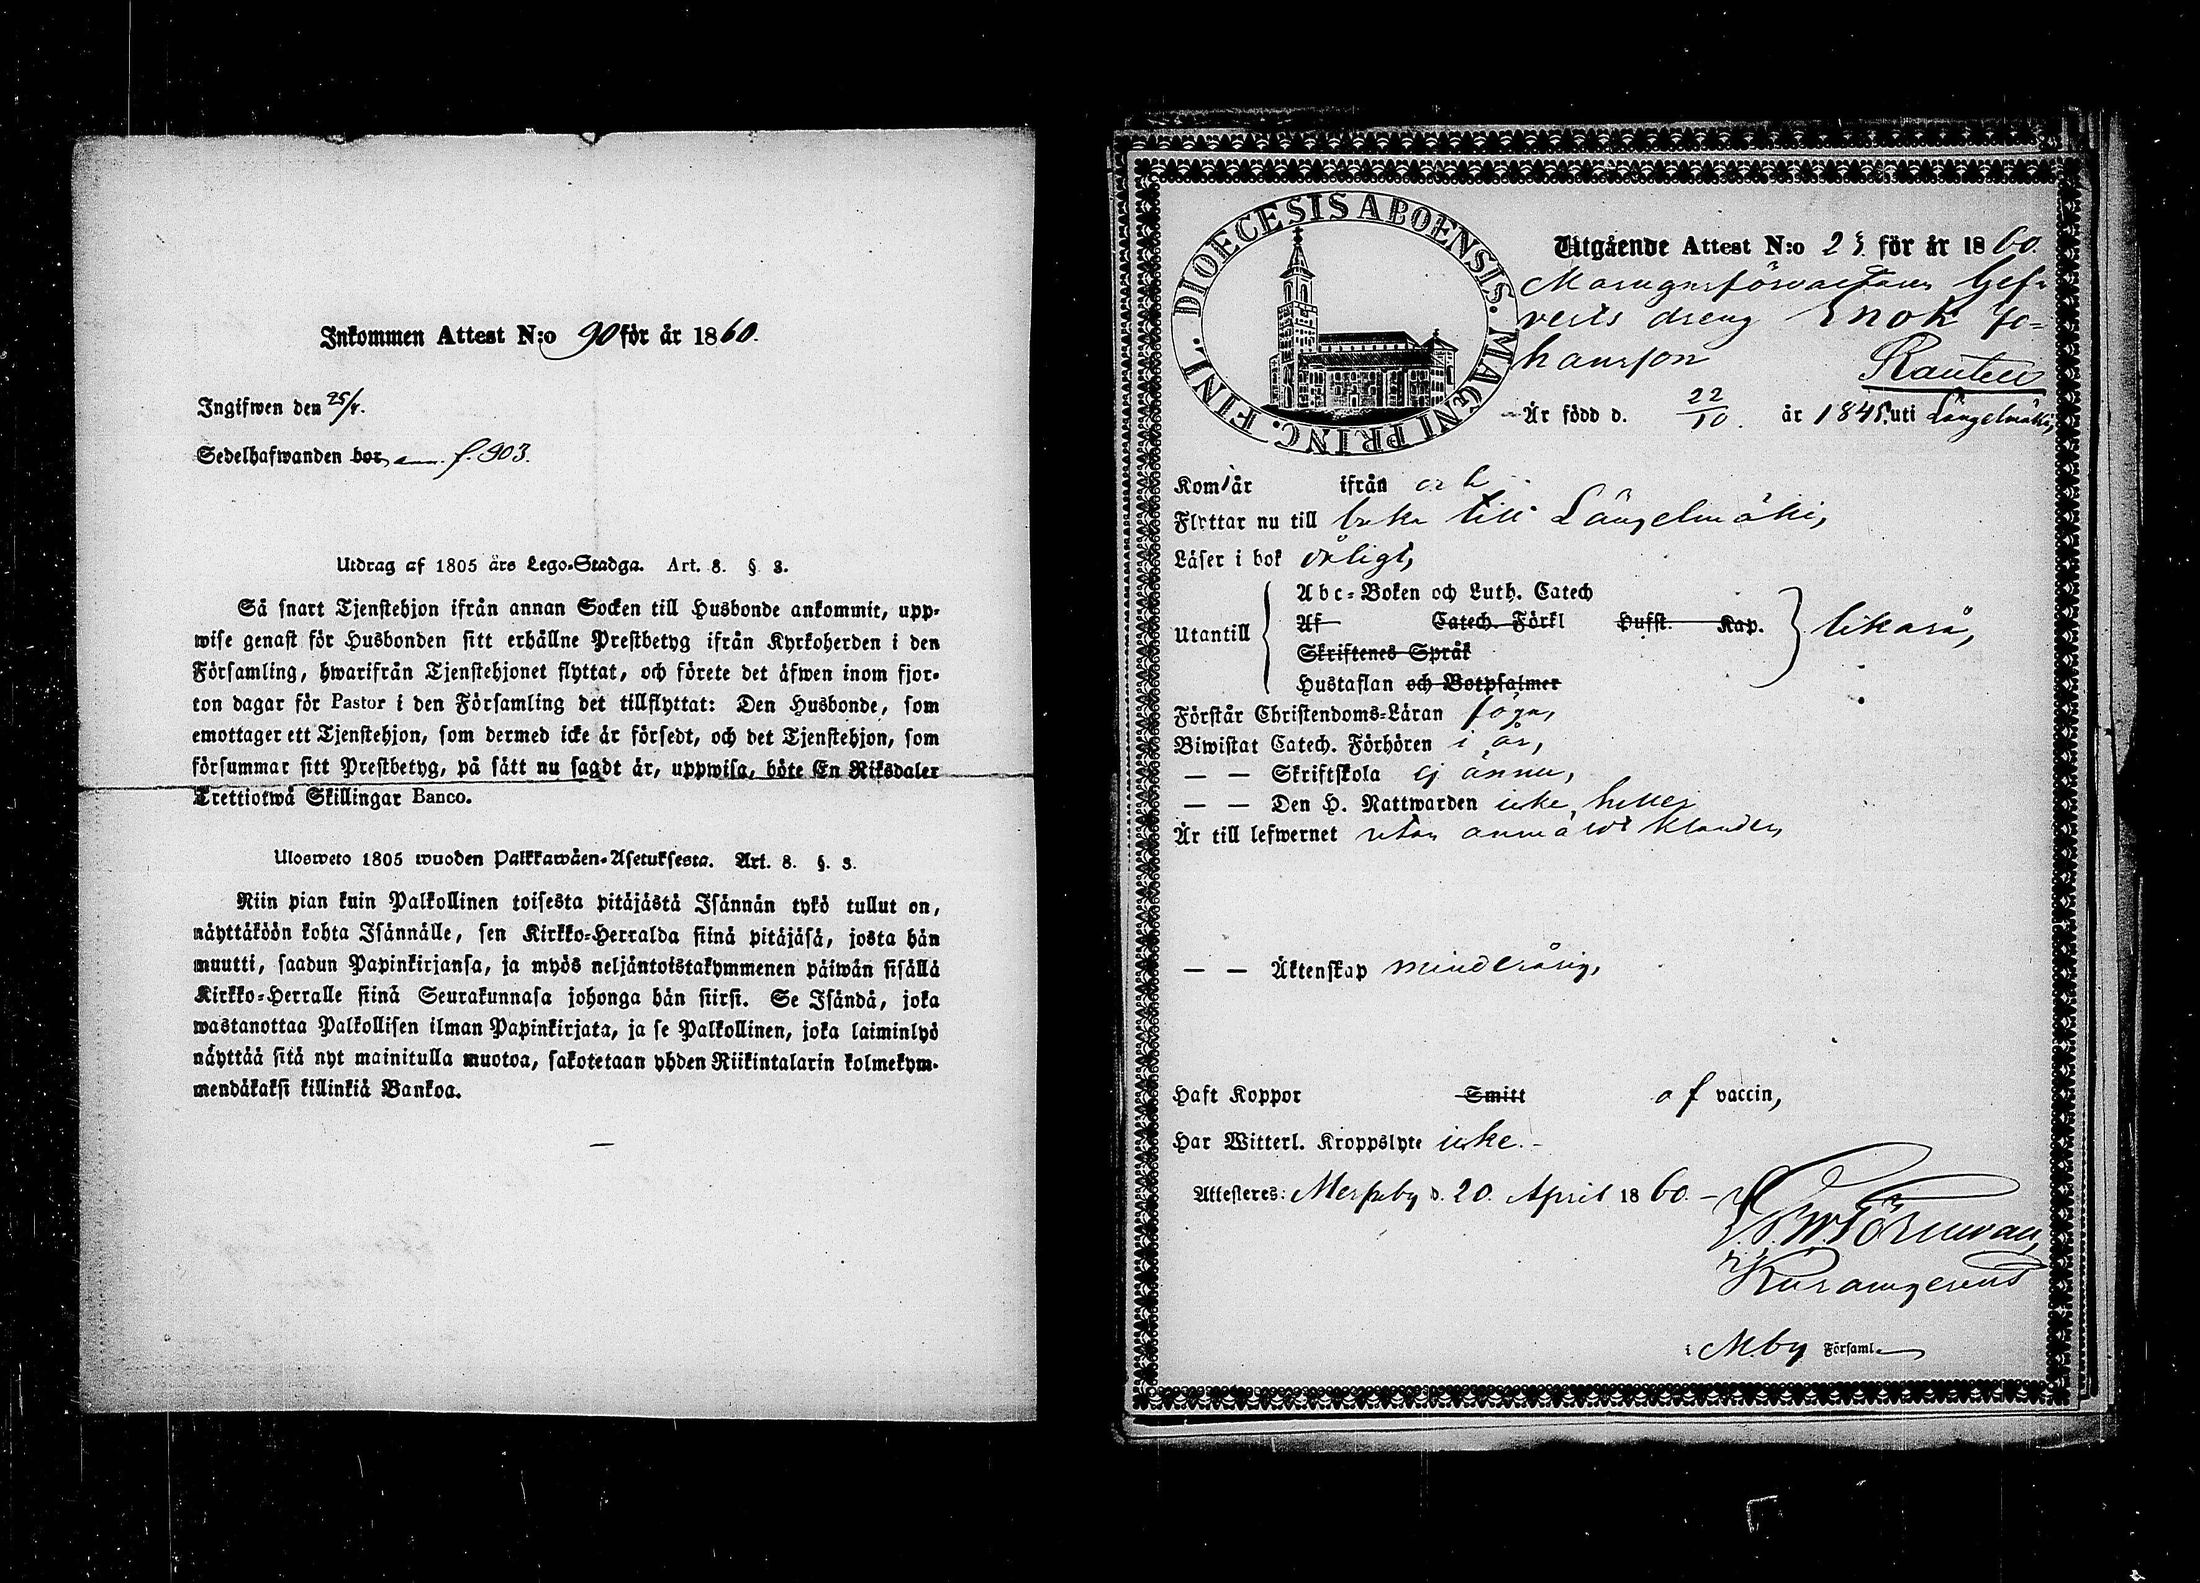 Inkommen Attest N:o 90 för år 1860.
Ingifwen den 25/4.
Sedelhafwanden bor ann. f. 903.
Utdrag af 1805 års Lego-Stadga. Art. 8. § 3.
Så snart Tjenstehjon ifrån annan Socken till Husbonde ankommit, upp-
wise genast för Husbonden sitt erhållne Prestbetyg ifrån Kyrkoherden i den
Församling, hwarifrån Tjenstehjonet flyttat, och förete det äfwen inom fjor-
ton dagar för Pastor i den Församling det tillflyttat: Den Husbonde, som
emottager ett Tjenstehjon, som dermed icke är försedt, och det Tjenstehjon, som
försummar sitt Prestbetyg, på sätt nu sagdt är, uppwisa, böte En Riksdaler
Trettiotwå Skillingar Banco.
Ulosweto 1805 wuoden Palkkawäen-Asetuksesta. Art. 8. §. 3.
Niin pian kuin Palkollinen toisesta pitäjästä Isännän tykö tullut on,
näyttäköön kohta Isännälle, sen Kirkko-Herralda siinä pitäjäsä, josta hän
muutti, saadun Papinkirjansa, ja myös neljäntoistakymmenen päiwän sisällä
Kirkko-Herralle siinä Seurakunnasa johonga hän siirsi. Se Isändä, joka
wastanottaa Palkollisen ilman Papinkirjata, ja se Palkollinen, joka laiminlyö
näyttää sitä nyt mainitulla muotoa, sakotetaan yhden Riikintalarin kolmekym-
mendäkaksi killinkiä Bankoa.
DIOECESIS ABOENSIS. MAGNI PRINC. FINL.
Utgående Attest N:o 25. för år 1860.
dreng Enok Jo-
hansson
Är född d. 22/10. år 1845. uti Längelmäki,
Kom i år ifrån
Flyttar nu till till Längelmäki,
Läser i bok dråligt,
Utantill
Abc-Boken och Luth. Catech
Af Catech. Förkl Husst. Kap.
Skriftenes Språk
Hustaflan och Botpsalmer
likaså,
Förstår Christendoms-Läran föga,
Biwistat Catech. Förhören i år,
— — Skriftskola ej ännu,
— — Den H. Nattwarden icke heller
Är till lefwernet utan anmäldt klander,
— — Äktenskap minderårig,
Haft Koppor Smitt af vaccin,
Har Witterl. Kroppslyte icke.
Attesteres: d. 20. April 1860.
i M.by Församl.